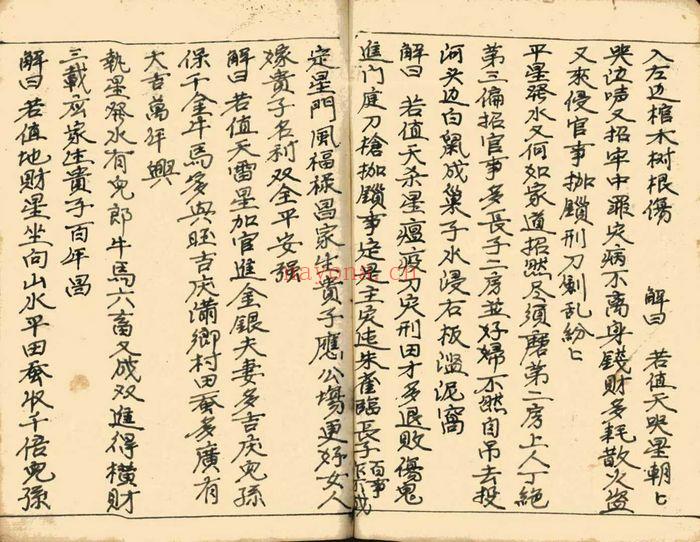 入左边棺木树根傷　解曰　若值天哭星朝〻
哭边哮又招牢中罪灾病不离身錢財多耗散火盗
又來侵官事枷鎖刑刀割乱紛〻
平星發水又何如家道招然尽須磨第二房上人丁絕
第三偏招官事多長子二房並好婦不然自吊去投
河头边白氣成巢子水浸右板滥泥窩
解曰　若值天杀星瘟疫刀灾刑田才多退敗傷鬼
進门庭刀槍枷鎖事定是主灾走朱雀臨長子百事
定星門風福禄昌家生貴子應公場更好女人
嫁貴子名利双全平安强
解曰若值天雷星加官進金銀夫妻多吉庆兒孫
保千金牛馬多興旺吉庆满鄉村田蚕多廣有
大吉萬年興
執星發水有兒郎牛馬六畜又成双進得橫財
三載后家生貴子百年昌
解曰若值地財星坐向山水平田蚕收千倍兒孫
nayona.cn